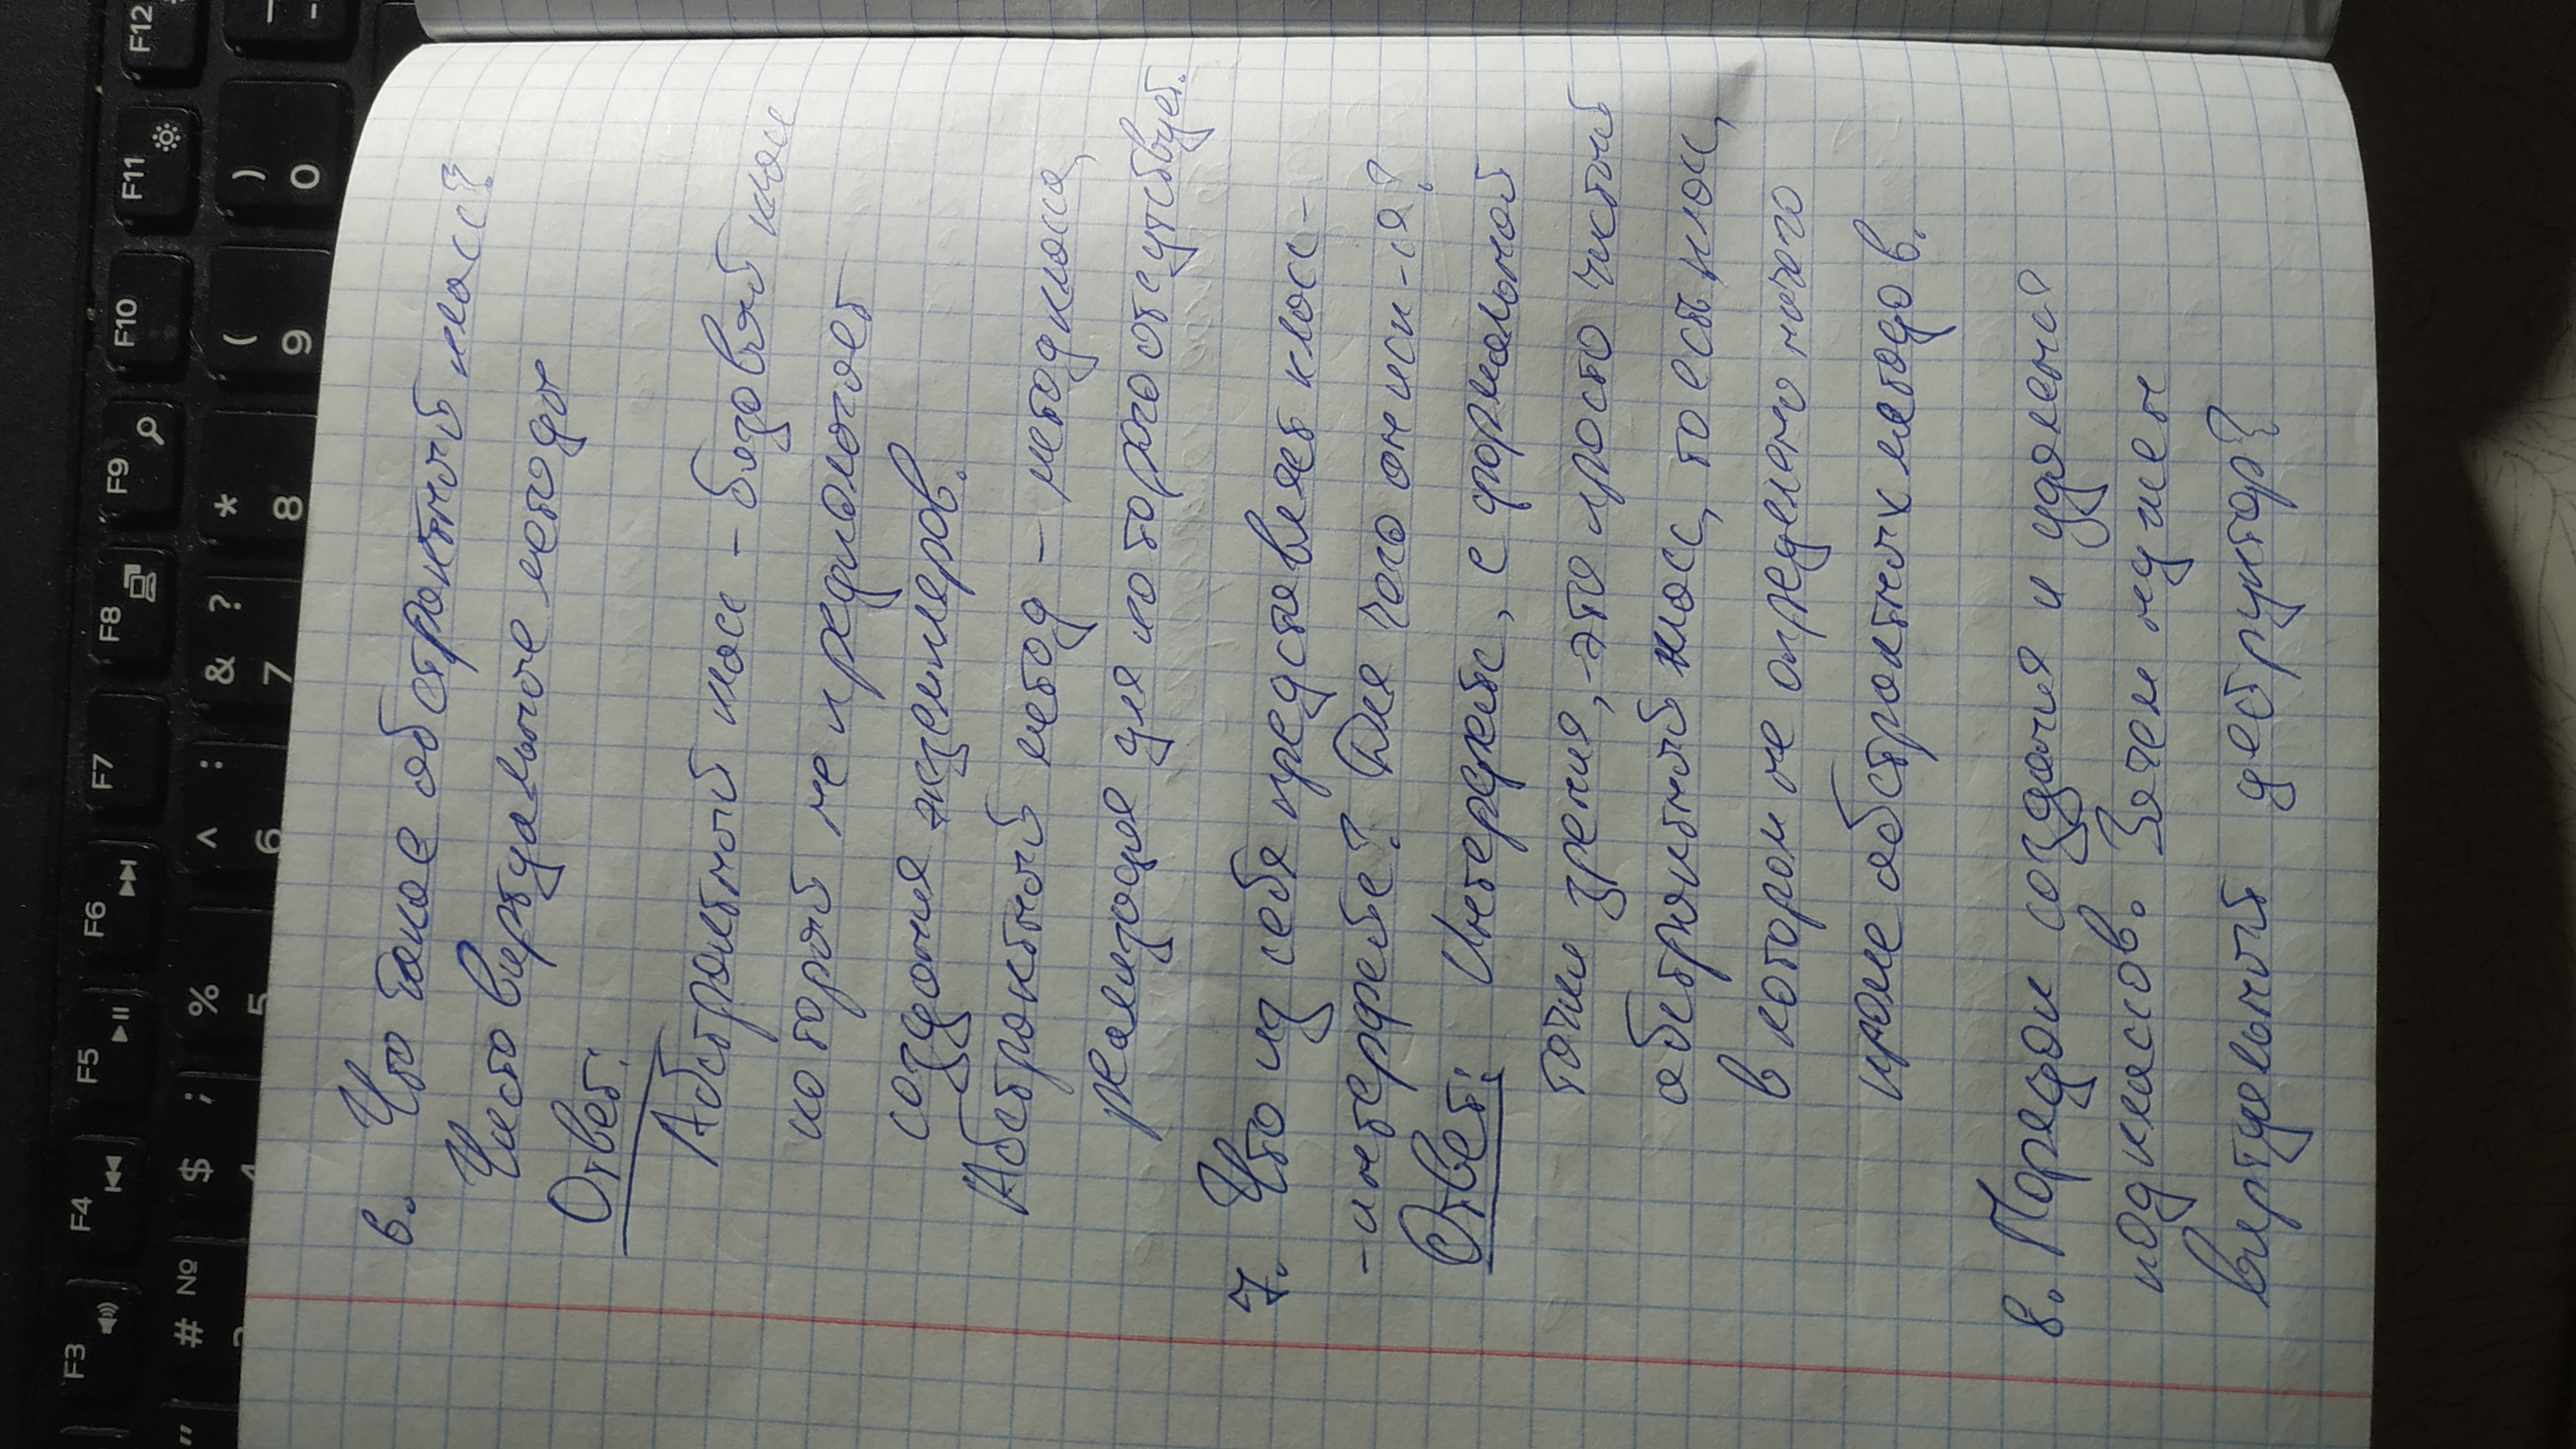 F3 F4 F5 F6 F7 F8 F9 F10 F11 F12
" # № $ ; % ^ : & ? * ( )
4 5 6 7 8 9 0
6. Что такое абстрактный класс?
Чисто виртуальные методы
Ответ:
Абстрактный класс – базовый класс
который не предполагает
создания экземпляров.
Абстрактный метод – метод класса,
реализация для которого отсутствует.
7. Что из себя представляет класс-
-интерфейс? Для чего он исп-ся?
Ответ: Интерфейс, с формальной
точки зрения, -это просто чистый
абстрактный класс, то есть класс,
в котором не определено ничего
кроме абстрактных методов.
8. Порядок создания и удаления
подклассов. Зачем нужен
виртуальный деструктор?